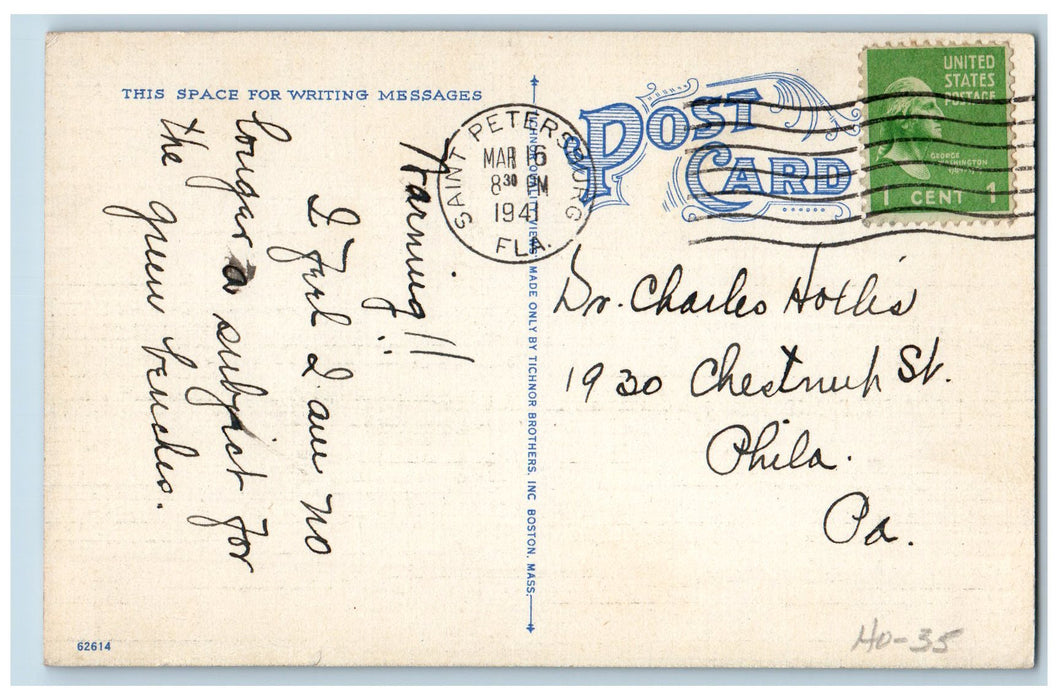 THIS SPACE FOR WRITING MESSAGES
Warning!!
I feel I am no
longer a subject for
the green benches.
POST CARD
SAINT PETERSBURG
MAR 16
8 30 PM
1941
FLA.
UNITED
STATES
POSTAGE
GEORGE
WASHINGTON
1 CENT 1
Dr. Charles Hollis
1930 Chestnut St.
Phila.
Pa.
MADE ONLY BY TICHNOR BROTHERS, INC BOSTON, MASS.
62614
HO-35